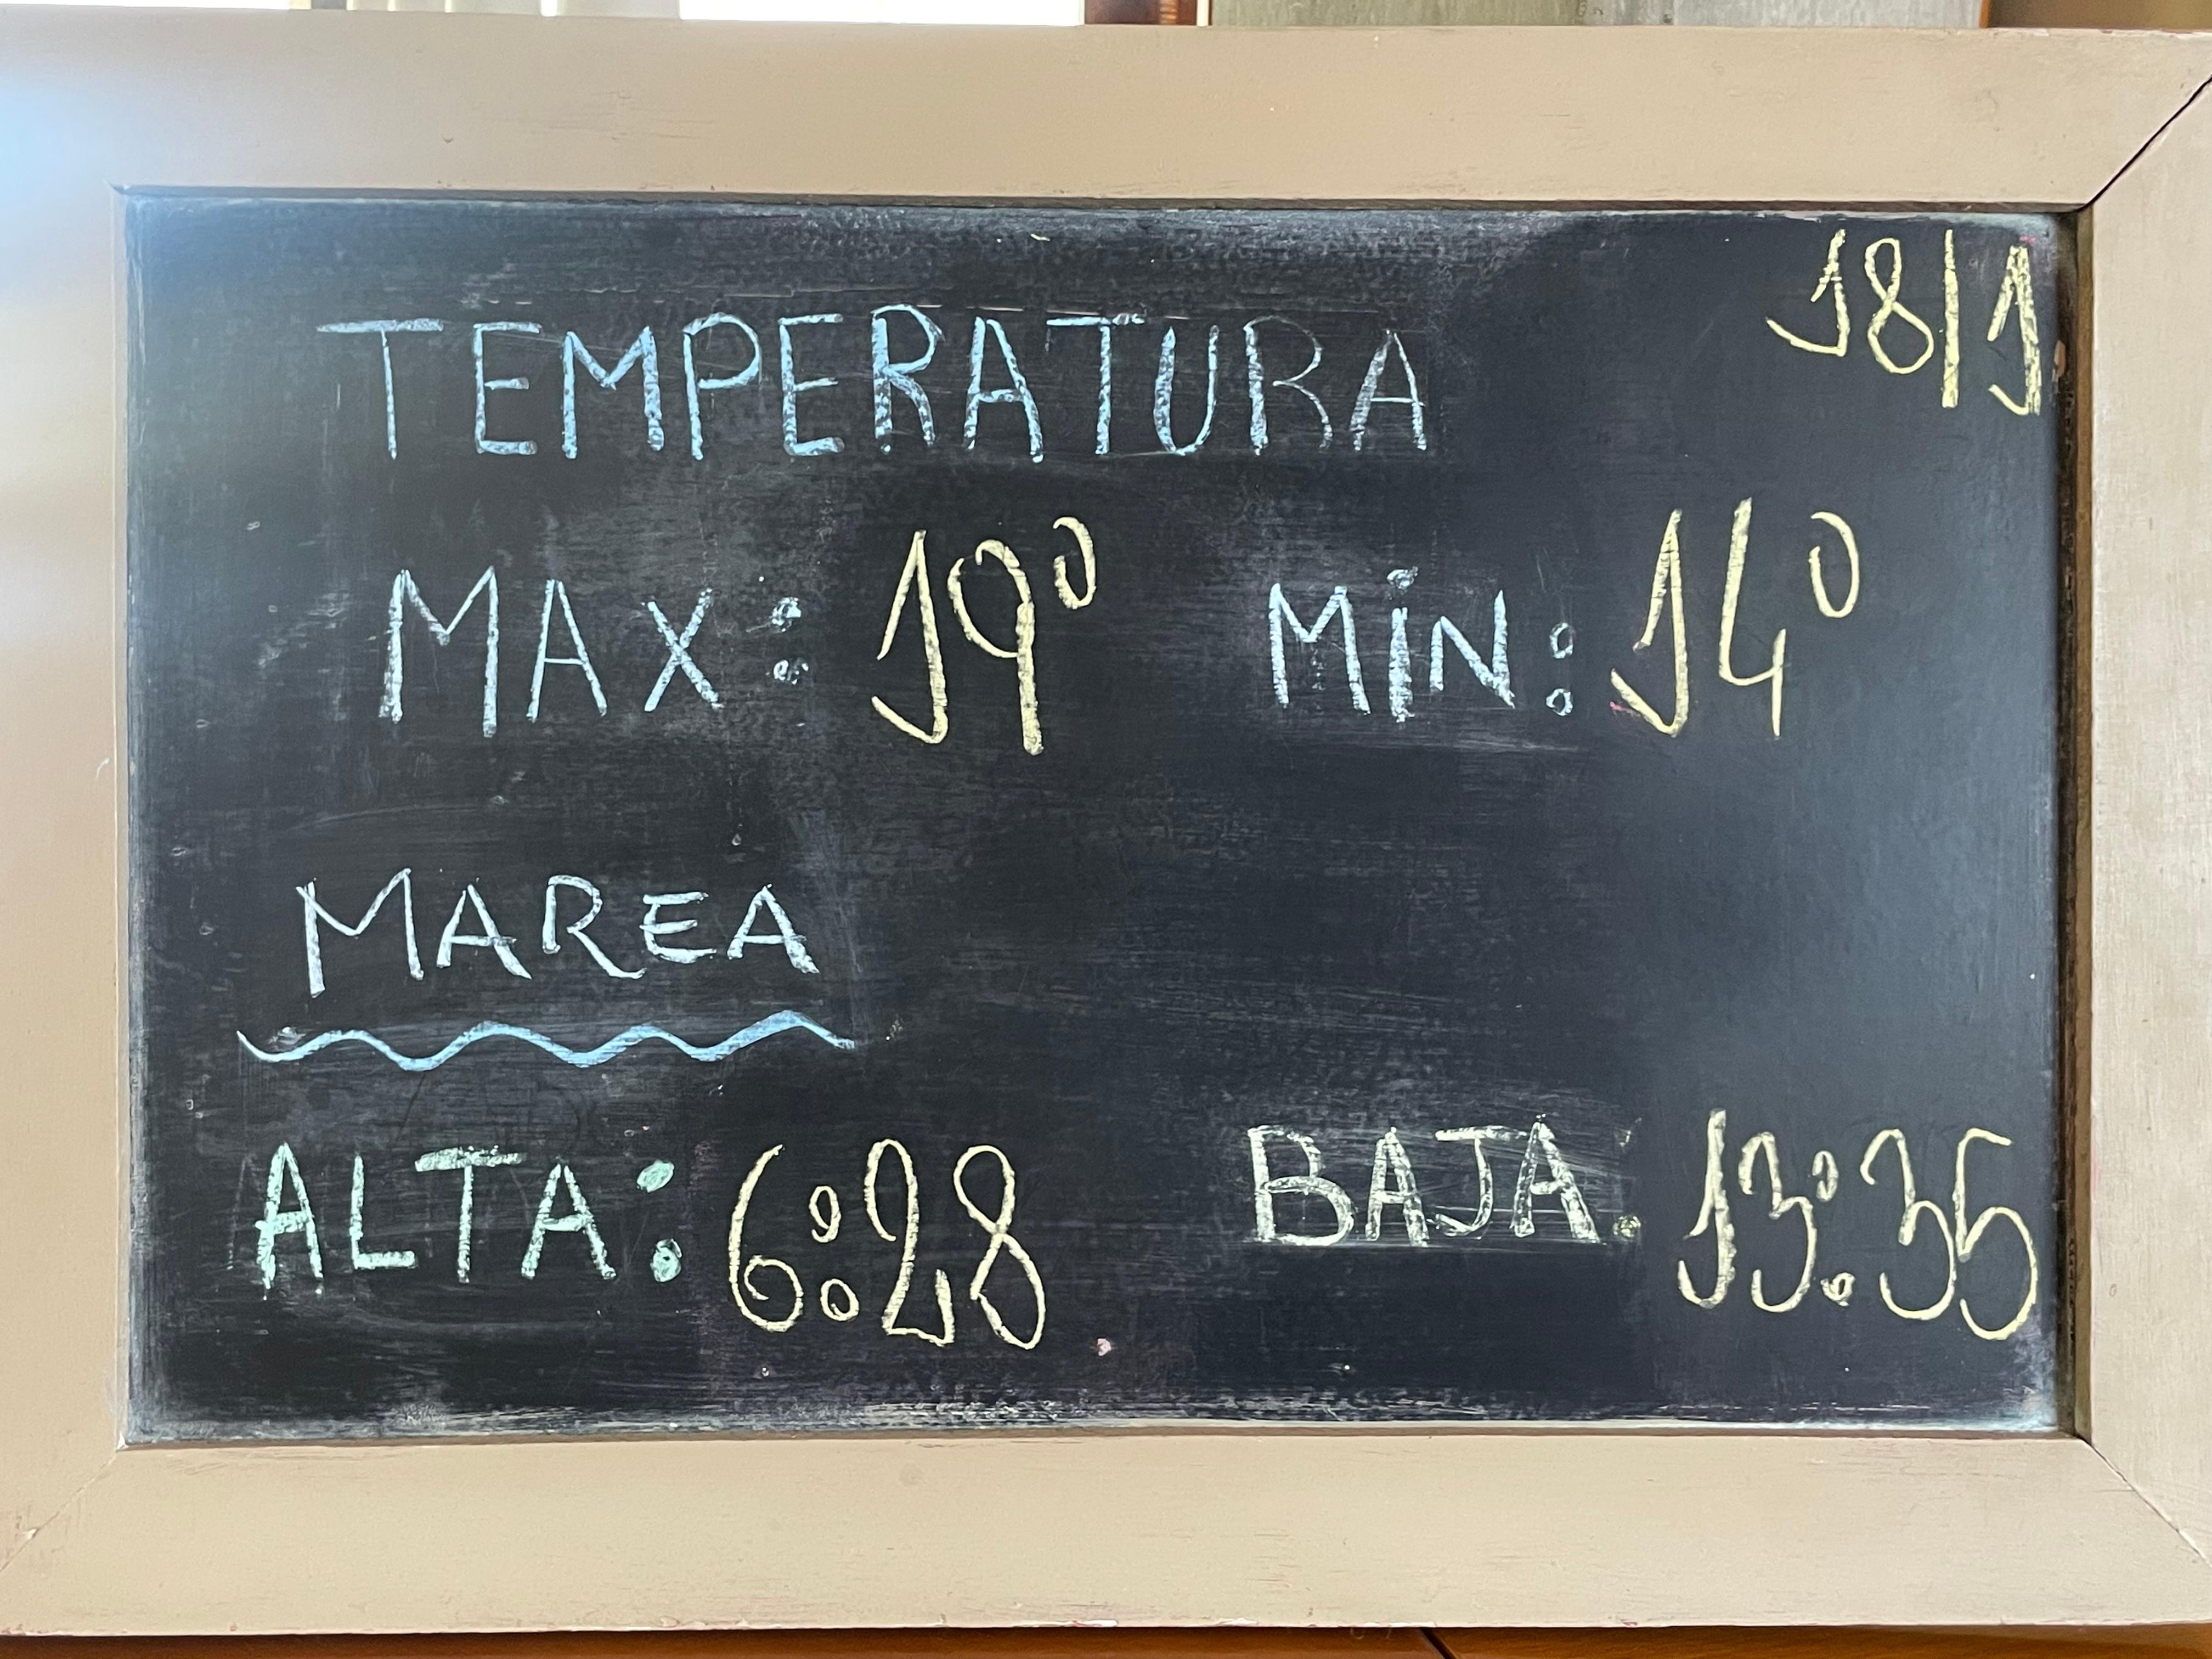 18/1
TEMPERATURA
MAX: 19° MÍN: 14°
MAREA
ALTA: 6:28 BAJA: 13:35